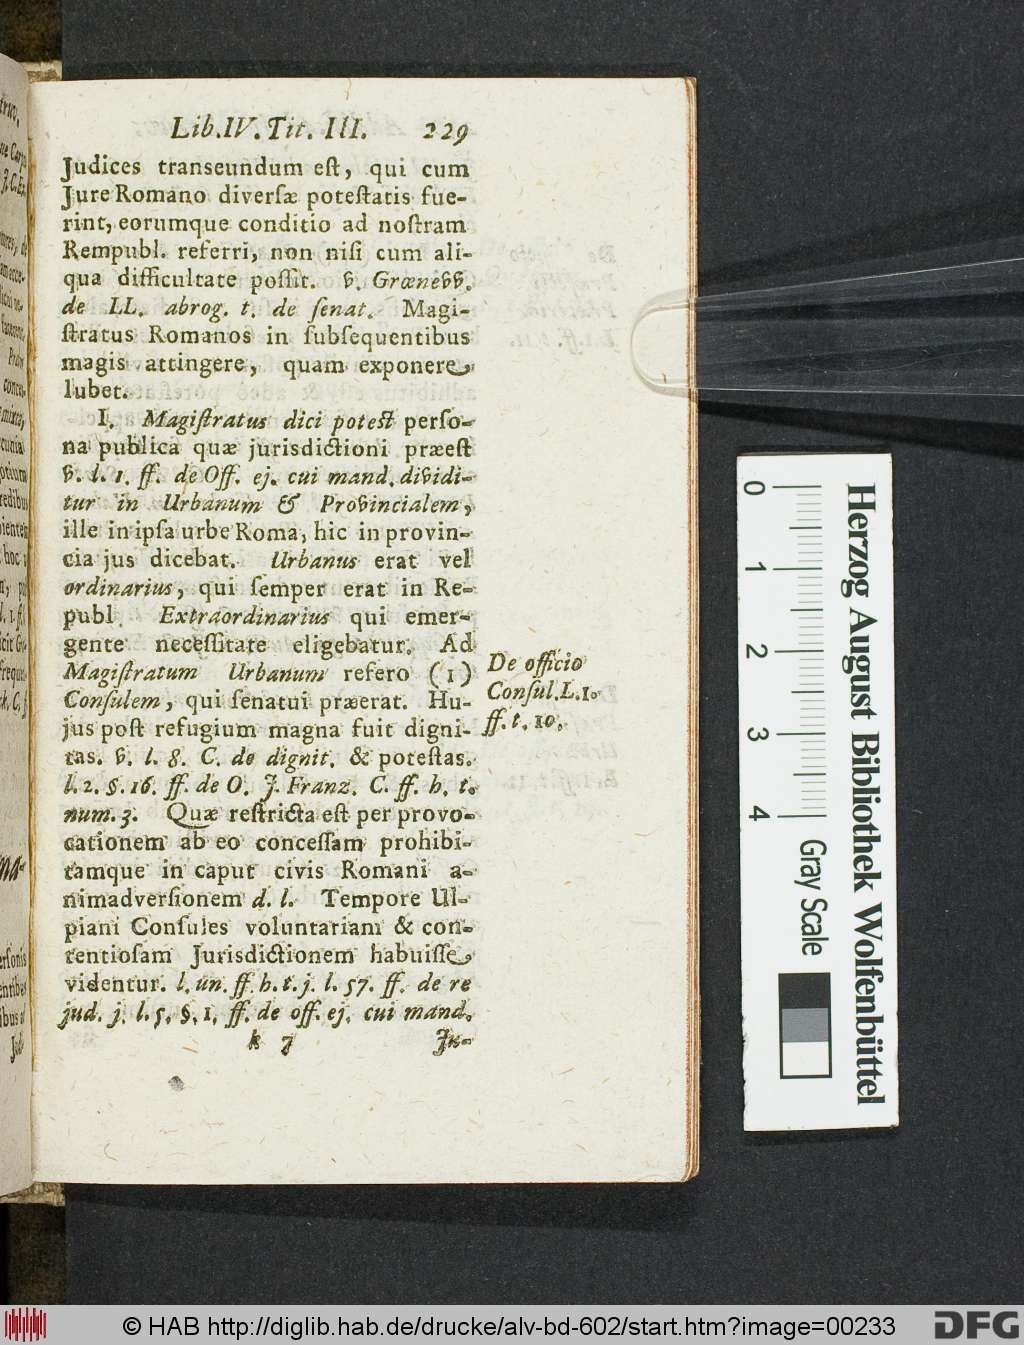 Lib.IV. Tit. III. 229
Judices transeundum eſt, qui cum
Jure Romano diverſæ poteſtatis fue-
rint, eorumque conditio ad noſtram
Rempubl. referri, non niſi cum ali-
qua difficultate poſſit. v. Grœnevv.
de LL. abrog. t. de ſenat. Magi-
ſtratus Romanos in ſubſequentibus
magis attingere, quam exponere
lubet.
I. Magiſtratus dici poteſt perſo-
na publica quæ jurisdictioni præeſt
v. l. 1. ff. de Off. ej. cui mand. dividi-
tur in Urbanum & Provincialem,
ille in ipſa urbe Roma, hic in provin-
cia jus dicebat. Urbanus erat vel
ordinarius, qui ſemper erat in Re-
publ. Extraordinarius qui emer-
gente neceſſitate eligebatur. Ad
Magiſtratum Urbanum refero (1)
Conſulem, qui ſenatui præerat. Hu-
jus poſt refugium magna fuit digni-
tas. v. l. 8. C. de dignit. & poteſtas.
l. 2. §. 16. ff. de O. J. Franz. C. ff. h. t.
num. 3. Quæ reſtricta eſt per provo-
cationem ab eo conceſſam prohibi-
tamque in caput civis Romani a-
nimadverſionem d. l. Tempore Ul-
piani Conſules voluntariam & con-
tentioſam Jurisdictionem habuiſſe
videntur. l. un. ff. h. t. j. l. 57. ff. de re
jud. j. l. 5. §. 1. ff. de off. ej. cui mand.
k 7 Ju-
De officio
Conſul. L. 1.
ff. t. 10.
0 1 2 3 4
Gray Scale
Herzog August Bibliothek Wolfenbüttel
© HAB http://diglib.hab.de/drucke/alv-bd-602/start.htm?image=00233
DFG